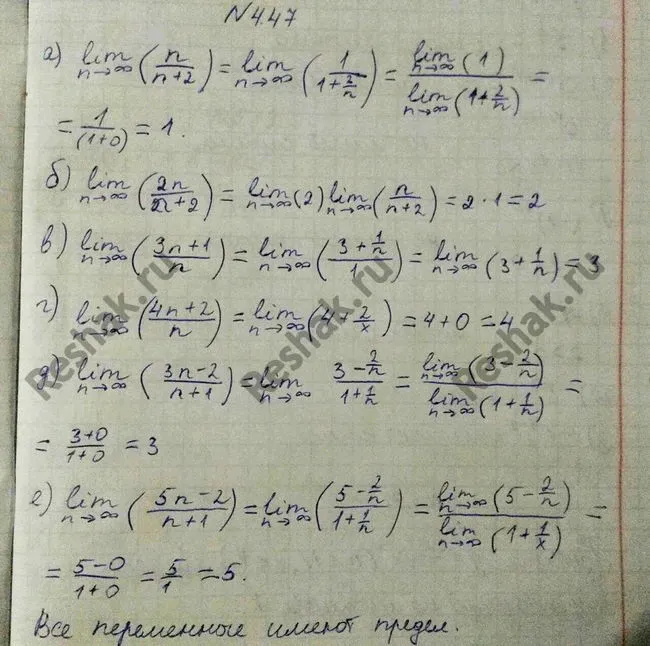 N 4.47
а) lim n→∞ (n/(n+2)) = lim n→∞ (1/(1+2/n)) = lim n→∞ (1) / lim n→∞ (1+2/n) =
= 1/(1+0) = 1.
б) lim n→∞ (2n/(2n+2)) = lim n→∞ (2) lim n→∞ (n/(n+2)) = 2·1 = 2
в) lim n→∞ ((3n+1)/n) = lim n→∞ ((3+1/n)/1) = lim n→∞ (3+1/n) = 3
г) lim n→∞ ((4n+2)/n) = lim n→∞ (4+2/x) = 4+0 = 4
д) lim n→∞ ((3n-2)/(n+1)) = lim n→∞ (3-2/n)/(1+1/n) = lim n→∞ (3-2/n) / lim n→∞ (1+1/n) =
= (3+0)/(1+0) = 3
е) lim n→∞ ((5n-2)/(n+1)) = lim n→∞ ((5-2/n)/(1+1/n)) = lim n→∞ (5-2/n) / lim n→∞ (1+1/x) =
= (5-0)/(1+0) = 5/1 = 5.
Все переменные имеют предел.
Reshak.ru
Reshak.ru
Reshak.ru